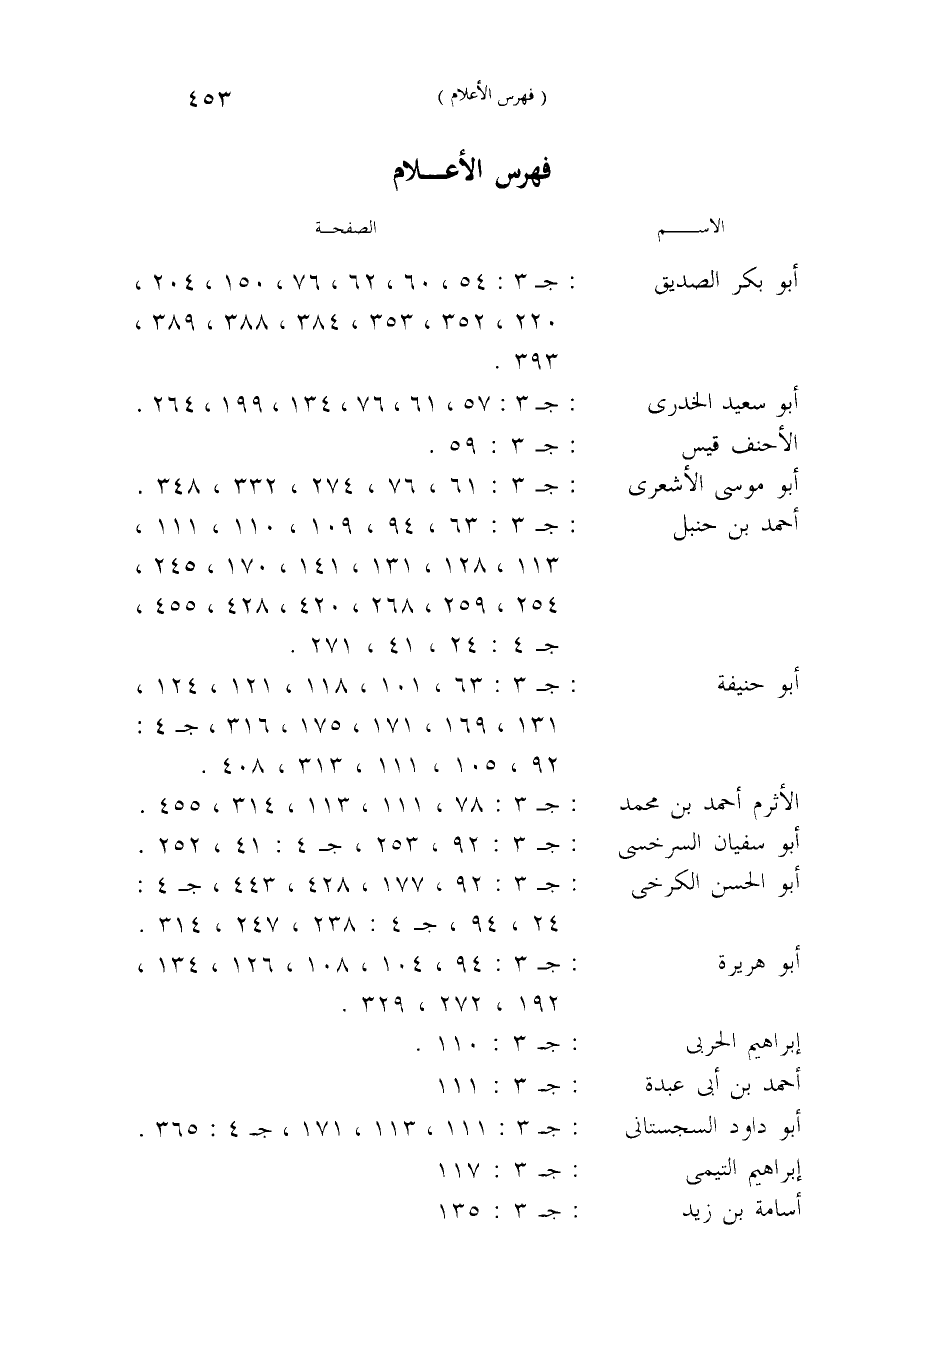 ( فهرس الأعلام ) ٤٥٣
فهرس الأعـــلام
الاســـــم الصفحـــة
أبو بكر الصديق : جـ ٣ : ٥٤ ، ٦٠ ، ٦٢ ، ٧٦ ، ١٥٠ ، ٢٠٤ ،
٢٢٠ ، ٣٥٢ ، ٣٥٣ ، ٣٨٤ ، ٣٨٨ ، ٣٨٩ ،
٣٩٣ .
أبو سعيد الخدرى : جـ ٣ : ٥٧ ، ٦١ ، ٧٦ ، ١٣٤ ، ١٩٩ ، ٢٦٤ .
الأحنف قيس : جـ ٣ : ٥٩ .
أبو موسى الأشعرى : جـ ٣ : ٦١ ، ٧٦ ، ٢٧٤ ، ٣٣٢ ، ٣٤٨ .
أحمد بن حنبل : جـ ٣ : ٦٣ ، ٩٤ ، ١٠٩ ، ١١٠ ، ١١١ ،
١١٣ ، ١٢٨ ، ١٣١ ، ١٤١ ، ١٧٠ ، ٢٤٥ ،
٢٥٤ ، ٢٥٩ ، ٢٦٨ ، ٤٢٠ ، ٤٢٨ ، ٤٥٥ ،
جـ ٤ : ٢٤ ، ٤١ ، ٢٧١ .
أبو حنيفة : جـ ٣ : ٦٣ ، ١٠١ ، ١١٨ ، ١٢١ ، ١٢٤ ،
١٣١ ، ١٦٩ ، ١٧١ ، ١٧٥ ، ٣١٦ ، جـ ٤ :
٩٢ ، ١٠٥ ، ١١١ ، ٣١٣ ، ٤٠٨ .
الأثرم أحمد بن محمد : جـ ٣ : ٧٨ ، ١١١ ، ١١٣ ، ٣١٤ ، ٤٥٥ .
أبو سفيان السرخسى : جـ ٣ : ٩٢ ، ٢٥٣ ، جـ ٤ : ٤١ ، ٢٥٢ .
أبو الحسن الكرخى : جـ ٣ : ٩٢ ، ١٧٧ ، ٤٢٨ ، ٤٤٣ ، جـ ٤ :
٢٤ ، ٩٤ ، جـ ٤ : ٢٣٨ ، ٢٤٧ ، ٣١٤ .
أبو هريرة : جـ ٣ : ٩٤ ، ١٠٤ ، ١٠٨ ، ١٢٦ ، ١٣٤ ،
١٩٢ ، ٢٧٢ ، ٣٢٩ .
إبراهيم الحربى : جـ ٣ : ١١٠ .
أحمد بن أبى عبدة : جـ ٣ : ١١١
أبو داود السجستانى : جـ ٣ : ١١١ ، ١١٣ ، ١٧١ ، جـ ٤ : ٣٦٥ .
إبراهيم التيمى : جـ ٣ : ١١٧
أسامة بن زيد : جـ ٣ : ١٣٥